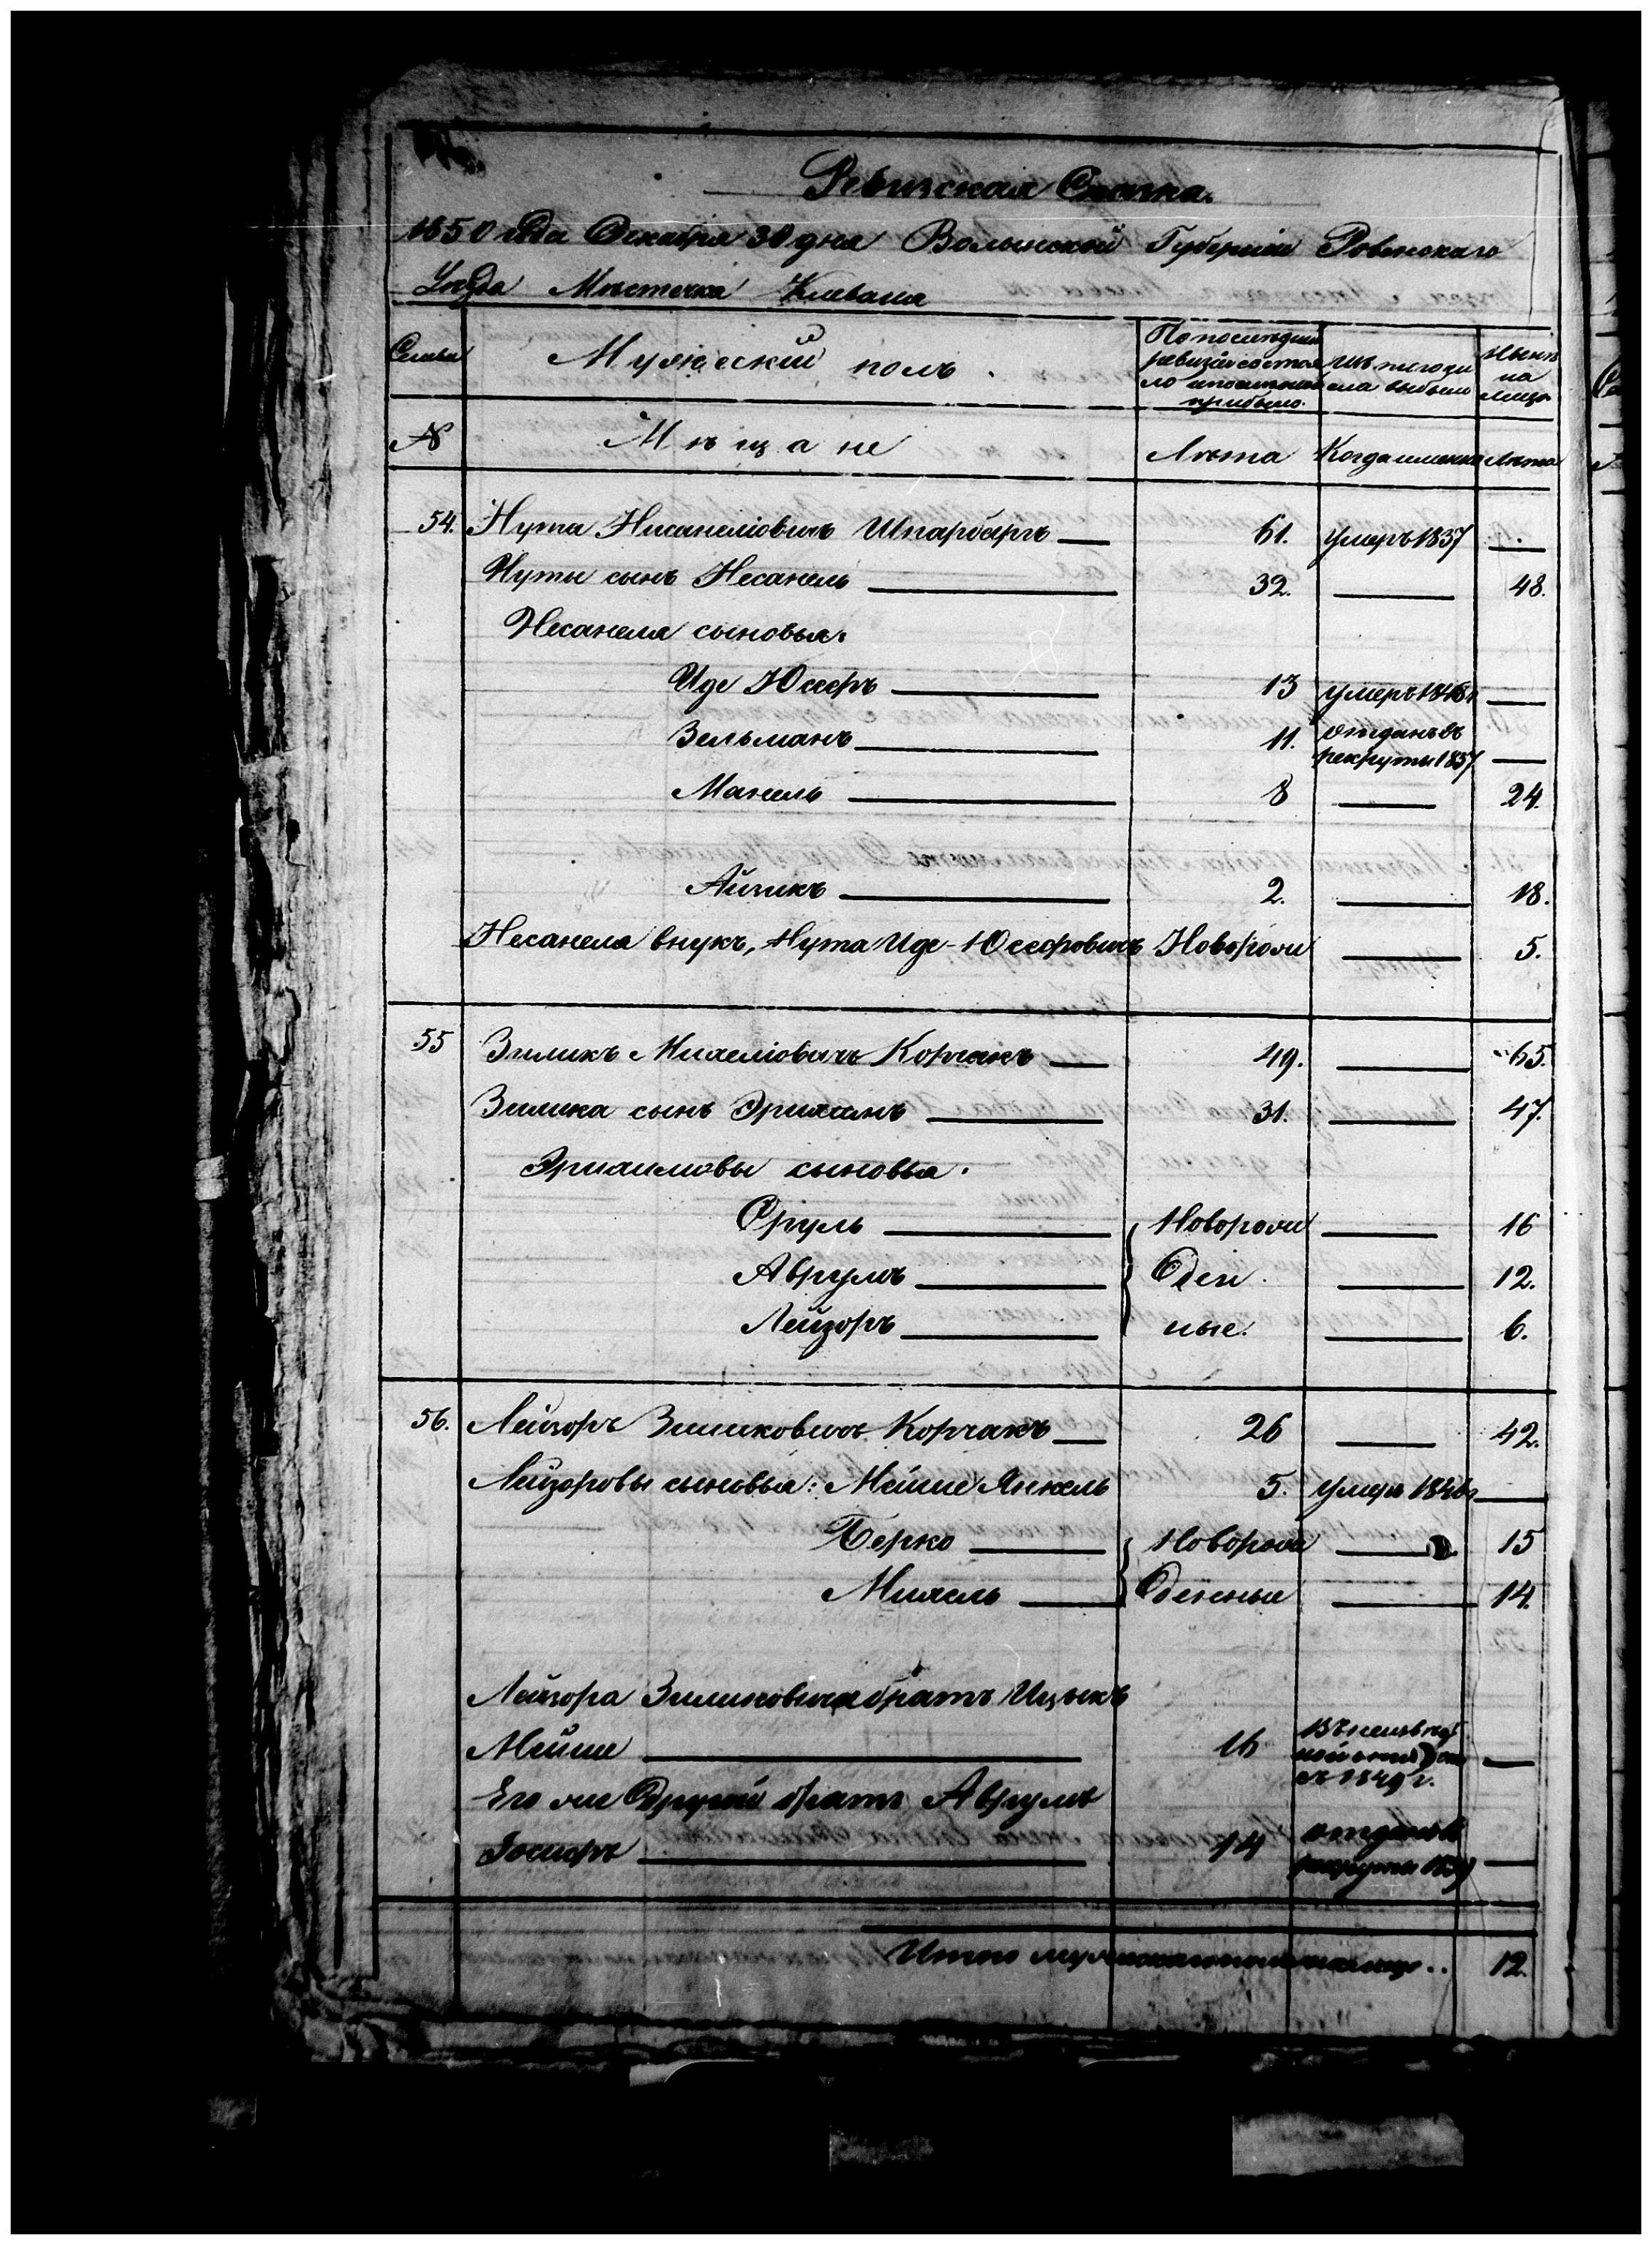 Ревизская Сказка.
1850 года Декабря 30 дня Волынской Губерніи Ровенскаго
Уезда Мѣстечка Клеваня
Семьи
Мужеский полъ.
По последней
ревизіи состоя
ло и после того
прибыло.
Изъ того чи
сла выбыло
Нынѣ
на
лицо
№
Мѣщане
Лѣта
Когда именно
Лѣта
54. Нута Нисанеліовичъ Шпарбергъ 61. умеръ 1837
Нуты сынъ Несанель 32. 48.
Несанеля сыновья:
Иде Юсефъ 13 умеръ
Зельманъ 11. отданъ въ
рекруты 1837
Манель 8 24.
Айзикъ 2. 18.
Несанеля внукъ, Нута Иде-Юсефовичъ Новорож 5.
55 Зиликъ Михеліовичъ Корчакъ 49. 65.
Зилика сынъ Эрихимъ 31. 47.
Эрихимовы сыновья.
Сруль Новорож 16
Аврумъ ден 12.
Лейзоръ ные. 6.
56. Лейзоръ Зиликовичъ Корчакъ 26 42.
Лейзоровы сыновья: Мейше Янкель 5. умеръ
Берко Новорож 15
Михель денные 14.
Лейзора Зиликовича братъ Ицыкъ
Мейше 16
съ 1849 г.
Его же Другой братъ Аврумъ
Іосифъ 14 отданъ въ
рекруты
Итого мужескаго пола на лицо.. 12